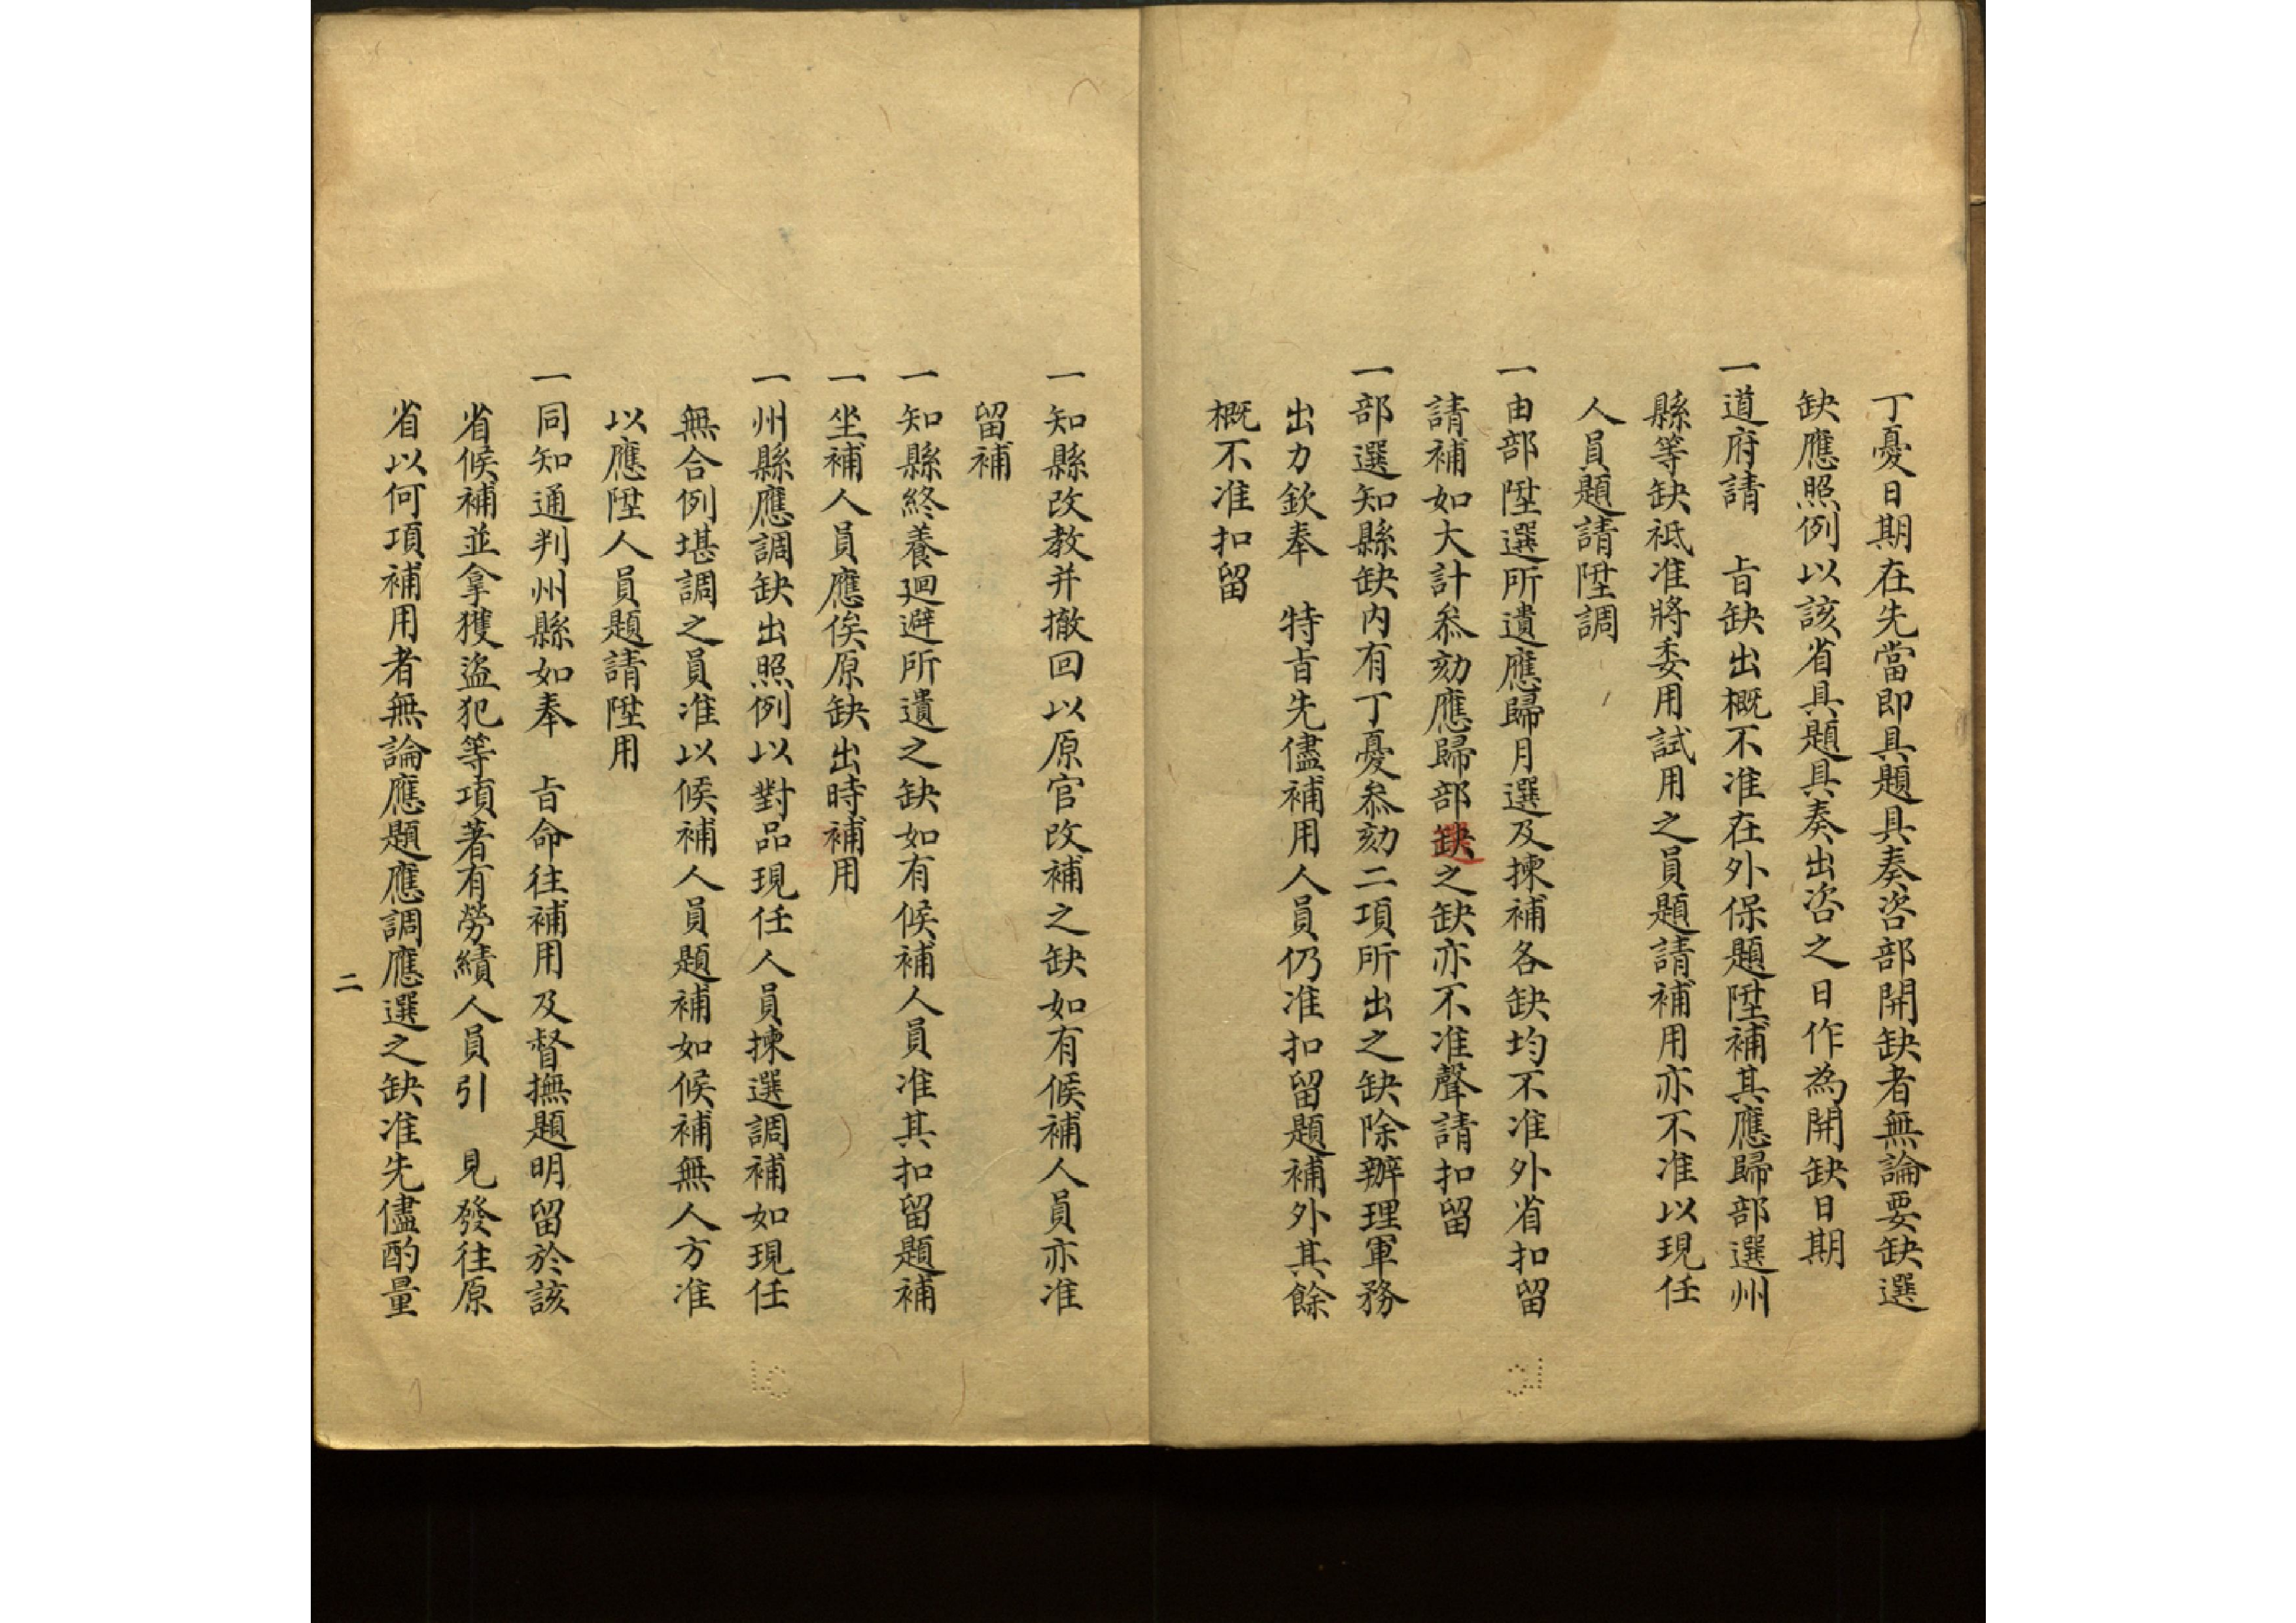 丁憂日期在先當即具題具奏咨部開缺者無論要缺選
缺應照例以該省具題具奏出咨之日作為開缺日期
一道府請　旨缺出概不准在外保題陞補其應歸部選州
縣等缺祗准將委用試用之員題請補用亦不准以現任
人員題請陞調
一由部陞選所遺應歸月選及揀補各缺均不准外省扣留
請補如大計叅劾應歸部選之缺亦不准聲請扣留
一部選知縣缺內有丁憂叅劾二項所出之缺除辦理軍務
出力欽奉　特旨先儘補用人員仍准扣留題補外其餘
概不准扣留
一知縣改教并撤回以原官改補之缺如有候補人員亦准
留補
一知縣終養廻避所遺之缺如有候補人員准其扣留題補
一坐補人員應俟原缺出時補用
一州縣應調缺出照例以對品現任人員揀選調補如現任
無合例堪調之員准以候補人員題補如候補無人方准
以應陞人員題請陞用
一同知通判州縣如奉　旨命往補用及督撫題明留於該
省候補並拿獲盜犯等項著有勞績人員引　見發往原
省以何項補用者無論應題應調應選之缺准先儘酌量
二